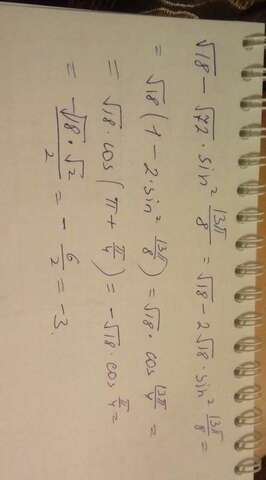 √18 - √72 · sin² 13π/8 = √18 - 2√18 · sin² 13π/8 =
= √18 (1 - 2 · sin² 13π/8) = √18 · cos 13π/4 =
= √18 · cos (π + π/4) = -√18 · cos π/4 =
= -√18 · √2 / 2 = - 6/2 = -3.